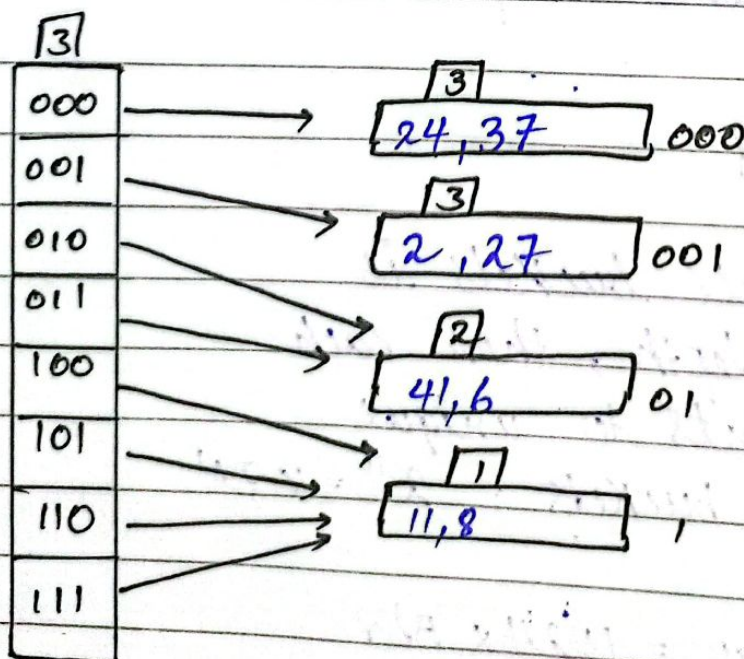 3
000
001
010
011
100
101
110
111
3
24, 37 000
3
2, 27 001
2
41, 6 01
1
11, 8 1